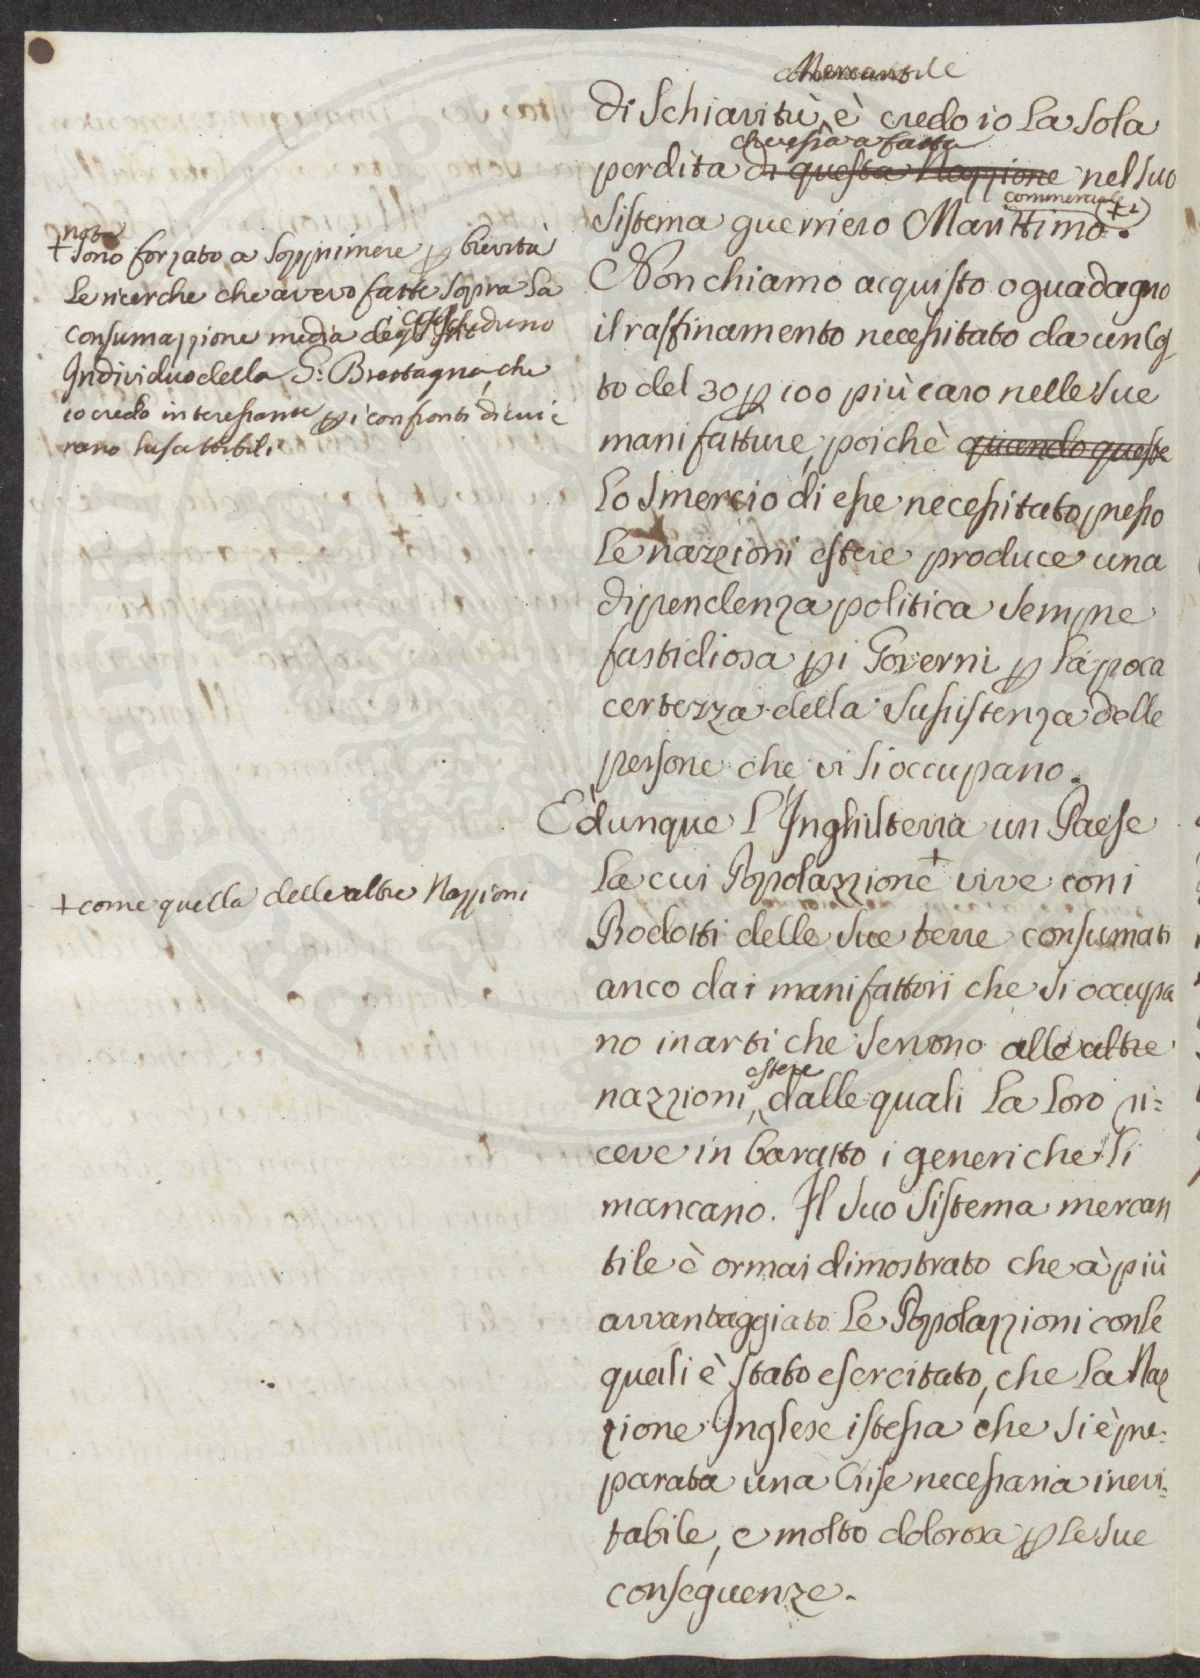 Mercantile
di Schiavitù, è credo io la sola
che essa à fatta
perdita di questa Nazzione nel suo
commerciale
sistema guerriero Marittimo.
Non chiamo acquisto o guadagno
il raffinamento necessitato da un
to del 30 p 100 più caro nelle sue
manifatture, poichè quando queste
lo smercio di esse necessitato presso
le nazzioni estere produce una
dipendenza politica sempre
fastidiosa p i Governi p la poca
certezza della sussistenza delle
persone che vi si occupano.
E dunque l'Inghilterra un Paese
la cui Popolazzione + vive con i
Prodotti delle sue terre consumati
anco dai manifattori che si occupa
no in arti che servono alle altre
estere
nazzioni, dalle quali la loro ri=
ceve in baratto i generi che li
mancano. Il suo sistema mercan
tile è ormai dimostrato che à più
avvantaggiato le Popolazzioni con le
quali è stato esercitato, che la Naz
zione Inglese istessa che si è pre=
parata una Crise necessaria inevi=
tabile, e molto dolorosa p le sue
conseguenze.
nota
+ Sono forzato a sopprimere p brevità
le ricerche che avevo fatte sopra la
consumazzione media di uno
Individuo della G: Brettagna, che
io credo interessante p i confronti di cui e
rano suscettibili
+ come quella delle altre Nazzioni